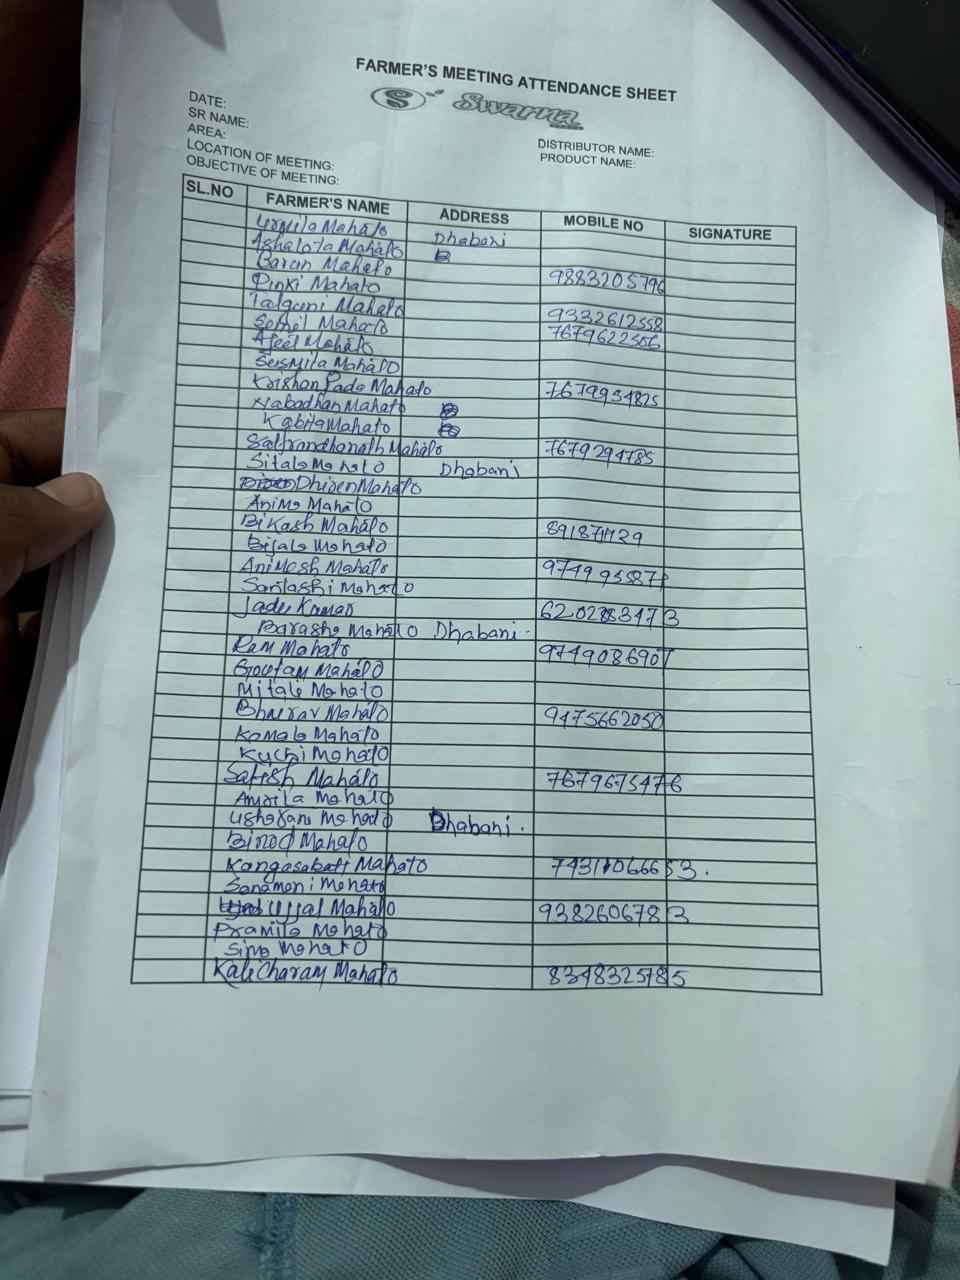 FARMER'S MEETING ATTENDANCE SHEET
S Swarna
DATE:
SR NAME:
AREA:
LOCATION OF MEETING:
OBJECTIVE OF MEETING:
DISTRIBUTOR NAME:
PRODUCT NAME:
SL.NO FARMER'S NAME ADDRESS MOBILE NO SIGNATURE
Urmila Mahato Dhabani
Mahato
Baran Mahato
Pinki Mahato 9883205796
Mahato
Mahato 9332612558
Mahato 7679622506
Susmita Mahato
Krishon Pada Mahato 7679954825
Nabadhan Mahato
Kabita Mahato
Mahato 7679294785
Sitala Mahato Dhabani
Dhiren Mahato
Anima Mahato
Bikash Mahato
Mahato
Animesh Mahato
Santashi Mahato
Jadu Kumar 6202883473
Mahato Dhabani
Ram Mahato 9749086907
Goutam Mahato
Mitali Mahato
Bhairav Mahato 9475662050
Kamala Mahato
Kuchi Mahato
Satish Mahato 7679675476
Mahato
Usharani Mahato Dhabani
Binod Mahato
Kangasabati Mahato
Sanamoni Mahato
Ujjal Mahato 9382606783
Pramila Mahato
Mahato
Kali Charam Mahato 8348325785